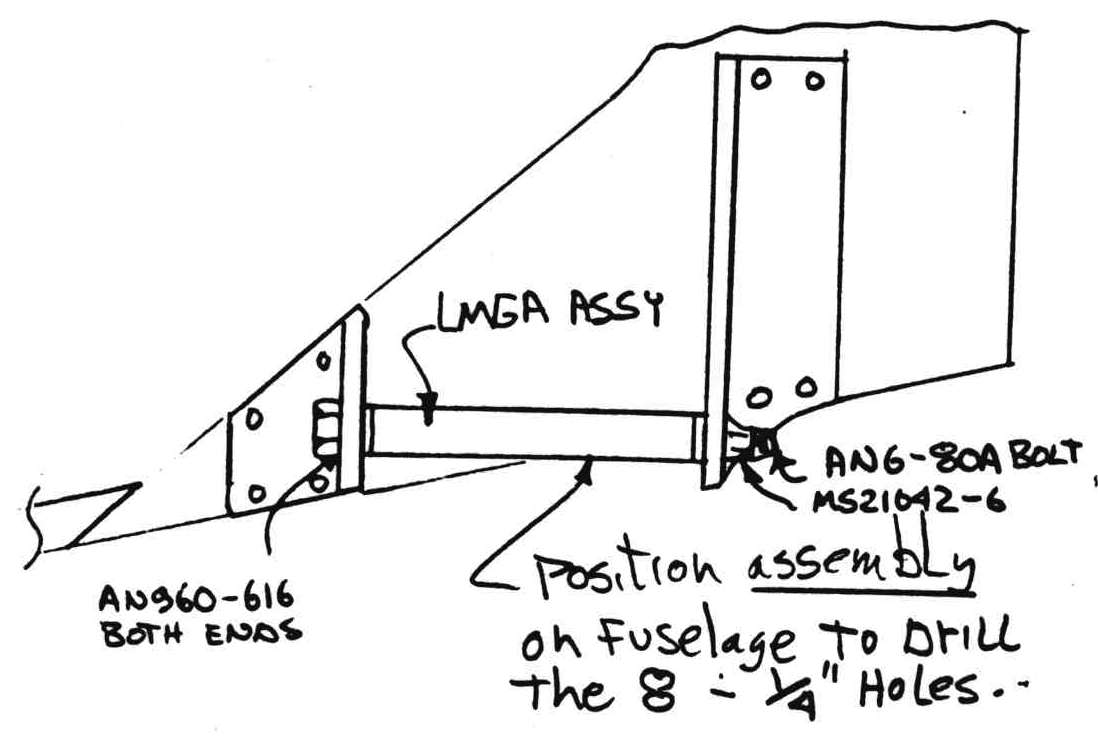 LMGA ASSY
AN6-80A BOLT
MS21042-6
AN960-616
BOTH ENDS
Position assembly
on Fuselage To Drill
the 8 - 1/4" Holes..